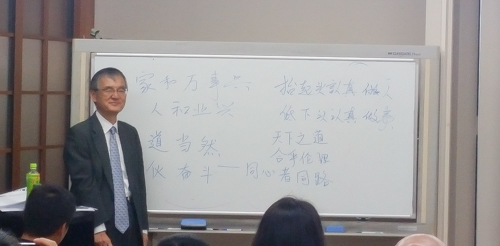 家和万事兴
人和业兴
道当然
伙奋斗——同心者同路
抬起头认真做人
低下头认真做事
天下之道
合乎伦理